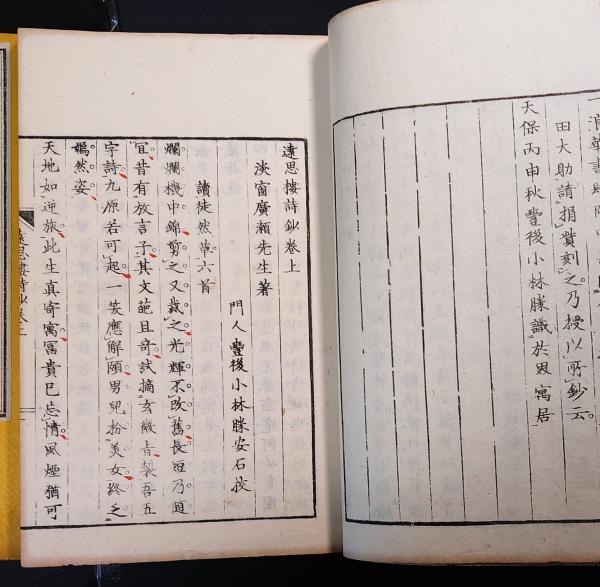 浪華書
田大助請捐貲刻之乃授以所鈔云
天保丙申秋豐後小林勝識於恩寓居
遠思樓詩鈔卷上
淡窗廣瀬先生著
門人豐後小林勝安石校
讀徒然草六首
爛爛機中錦剪之又裁之光輝不改舊長短乃適
宜昔有放言子其文葩且奇試摘玄微旨製吾五
字詩九原若可起一笑應解頤男兒扮美女終乏
嫣然姿
天地如逆旅此生真寄寓冨貴已忘情風煙猶可
遠思樓詩鈔卷上